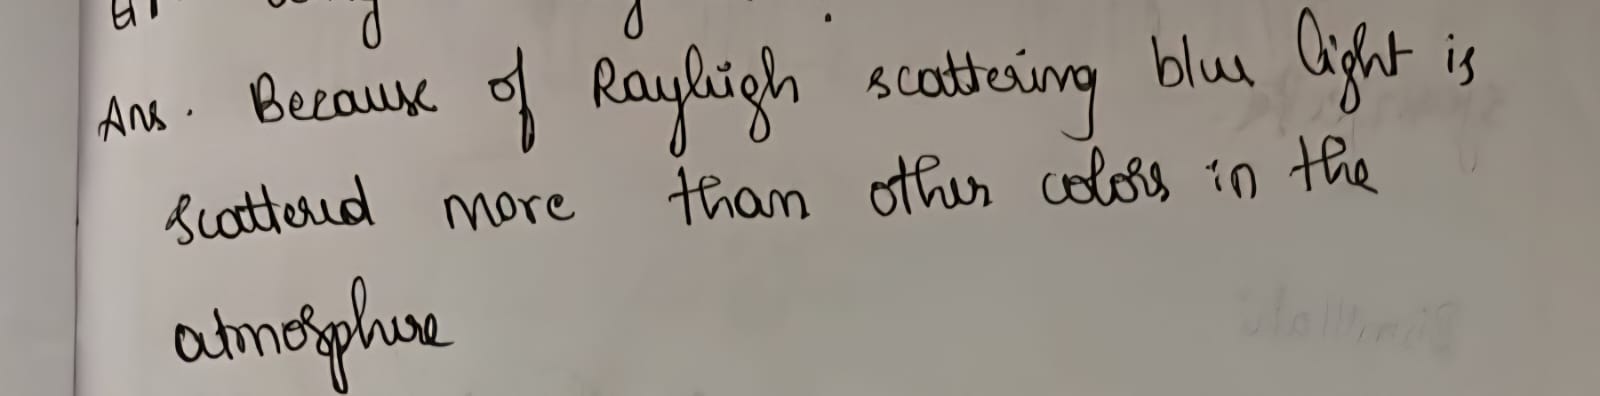 Ans. Because of Rayleigh scattering blue light is
scattered more than other colors in the
atmosphere